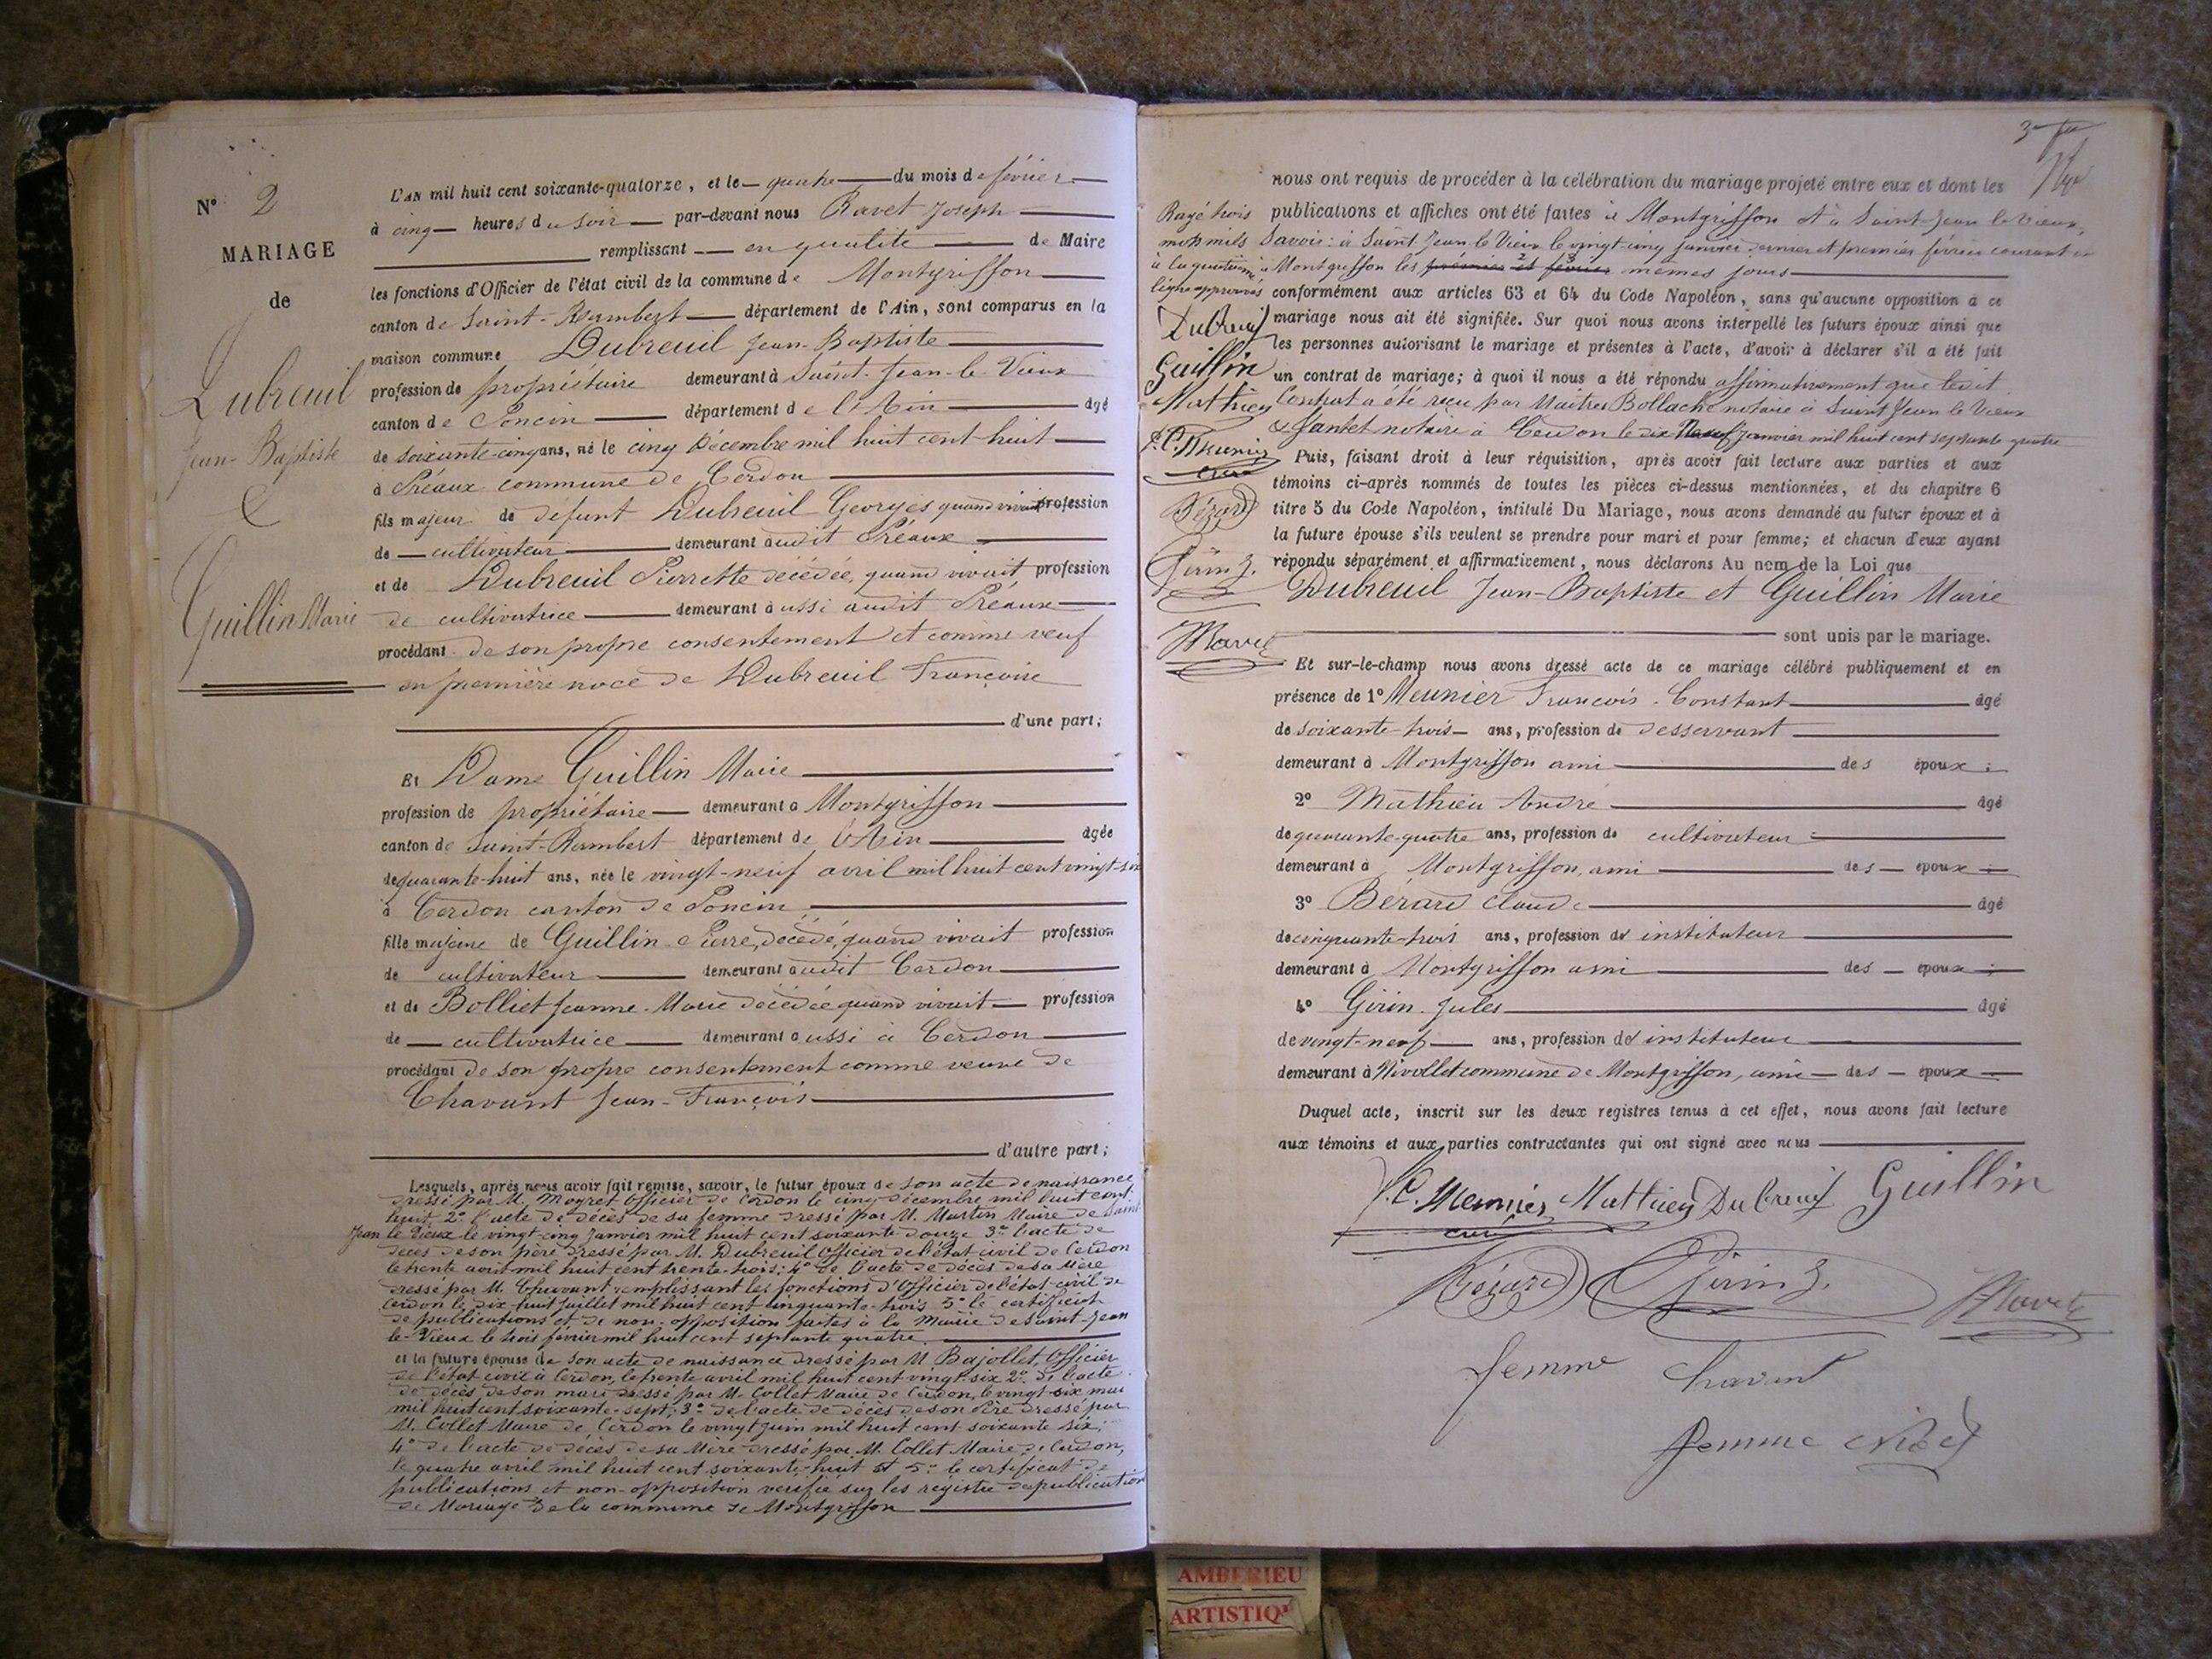 N° 2
MARIAGE
de
Dubreuil
Jean-Baptiste
&
Guillin Marie
L'AN mil huit cent soixante-quatorze, et le quatre du mois de février
à cinq heures du soir par-devant nous Ravet Joseph
remplissant en qualité de Maire
les fonctions d'Officier de l'état civil de la commune de Montgriffon
canton de Saint-Rambert département de l'Ain, sont comparus en la
maison commune Dubreuil Jean-Baptiste
profession de propriétaire demeurant à Saint-Jean-le-Vieux
canton de Poncin département de l'Ain âgé
de soixante-cinq ans, né le cinq Décembre mil huit cent huit
à Préaux commune de Cerdon
fils majeur de défunt Dubreuil Georges quand vivait profession
de cultivateur demeurant audit Préaux
et de Dubreuil Pierrette décédée, quand vivait profession
de cultivatrice demeurant aussi audit Préaux
procédant de son propre consentement et comme veuf
en première noce de Dubreuil Françoise
d'une part;
Et Dame Guillin Marie
profession de propriétaire demeurant à Montgriffon
canton de Saint-Rambert département de l'Ain âgée
de quarante-huit ans, née le vingt-neuf avril mil huit cent vingt-six
à Cerdon canton de Poncin
fille majeure de Guillin Pierre, décédé, quand vivait profession
de cultivateur demeurant audit Cerdon
et de Bolliet Jeanne-Marie décédée quand vivait profession
de cultivatrice demeurant aussi à Cerdon
procédant de son propre consentement comme veuve de
Chavant Jean-François
d'autre part;
Lesquels, après nous avoir fait remise, savoir, le futur époux de son acte de naissance
dressé par M. Moyret Officier de Cerdon le cinq décembre mil huit cent
huit, 2° l'acte de décès de sa femme dressé par M. Martin Maire de Saint
Jean le Vieux le vingt-cinq janvier mil huit cent soixante douze 3° l'acte de
décès de son père dressé par M. Dubreuil Officier de l'état civil de Cerdon
le trente août mil huit cent trente-trois; 4° de l'acte de décès de sa Mère
dressé par M. Chavant remplissant les fonctions d'Officier de l'état-civil de
Cerdon le dix-huit juillet mil huit cent cinquante-trois 5° le certificat
de publications et de non-opposition faites à la Mairie de Saint-Jean
le-Vieux le trois février mil huit cent septante quatre.
et la future épouse de son acte de naissance dressé par M. Bajollet, Officier
de l'état civil à Cerdon, le trente avril mil huit cent vingt-six 2° de l'acte
de décès de son mari dressé par M. Collet Maire de Cerdon, le vingt-six mai
mil huit cent soixante-sept; 3° de l'acte de décès de son Père dressé par
M. Collet Maire de Cerdon le vingt juin mil huit cent soixante six;
4° de l'acte de décès de sa Mère dressé par M. Collet Maire de Cerdon,
le quatre avril mil huit cent soixante-huit et 5° le certificat de
publications et non-opposition verifié sur les régistre de publication
de Mariage de la commune de Montgriffon
nous ont requis de procéder à la célébration du mariage projeté entre eux et dont les
publications et affiches ont été faites à Montgriffon et à Saint-Jean le Vieux,
Savoir: à Saint-Jean-le-Vieux le vingt-cinq janvier dernier et premier février courant et
à Montgriffon les premier et février mêmes jours
conformément aux articles 63 et 64 du Code Napoléon, sans qu'aucune opposition à ce
mariage nous ait été signifiée. Sur quoi nous avons interpellé les futurs époux ainsi que
les personnes autorisant le mariage et présentes à l'acte, d'avoir à déclarer s'il a été fait
un contrat de mariage; à quoi il nous a été répondu affirmativement que ledit
Contrat a été reçu par Maitres Bollache notaire à Saint Jean le Vieux
& Jantet notaire à Cerdon le dix Neuf janvier mil huit cent septante quatre
Puis, faisant droit à leur réquisition, après avoir fait lecture aux parties et aux
témoins ci-après nommés de toutes les pièces ci-dessus mentionnées, et du chapitre 6
titre 5 du Code Napoléon, intitulé Du Mariage, nous avons demandé au futur époux et à
la future épouse s'ils veulent se prendre pour mari et pour femme; et chacun d'eux ayant
répondu séparément et affirmativement, nous déclarons Au nom de la Loi que
Dubreuil Jean-Baptiste et Guillin Marie
sont unis par le mariage.
Et sur-le-champ nous avons dressé acte de ce mariage célébré publiquement et en
présence de 1° Meunier François-Constant âgé
de soixante-trois ans, profession de desservant
demeurant à Montgriffon ami des époux;
2° Mathieu André âgé
de quarante-quatre ans, profession de cultivateur
demeurant à Montgriffon, ami des époux
3° Bérard Claude âgé
de cinquante-trois ans, profession d' instituteur
demeurant à Montgriffon ami des époux
4° Girin Jules âgé
de vingt-neuf ans, profession d' instituteur
demeurant à Nivollet commune de Montgriffon, ami des époux
Duquel acte, inscrit sur les deux registres tenus à cet effet, nous avons fait lecture
aux témoins et aux parties contractantes qui ont signé avec nous
Rayé trois
mots nuls
à la quatrième
ligne approuvés
Dubreuil
Guillin
Mathieu
F. C. Meunier
curé
Bérard
Girin J.
J Ravet
F. C. Meunier Mathieu Dubreuil Guillin
curé
Bérard Girin J. J Ravet
femme Chavant
femme
AMBERIEU
ARTISTIQ